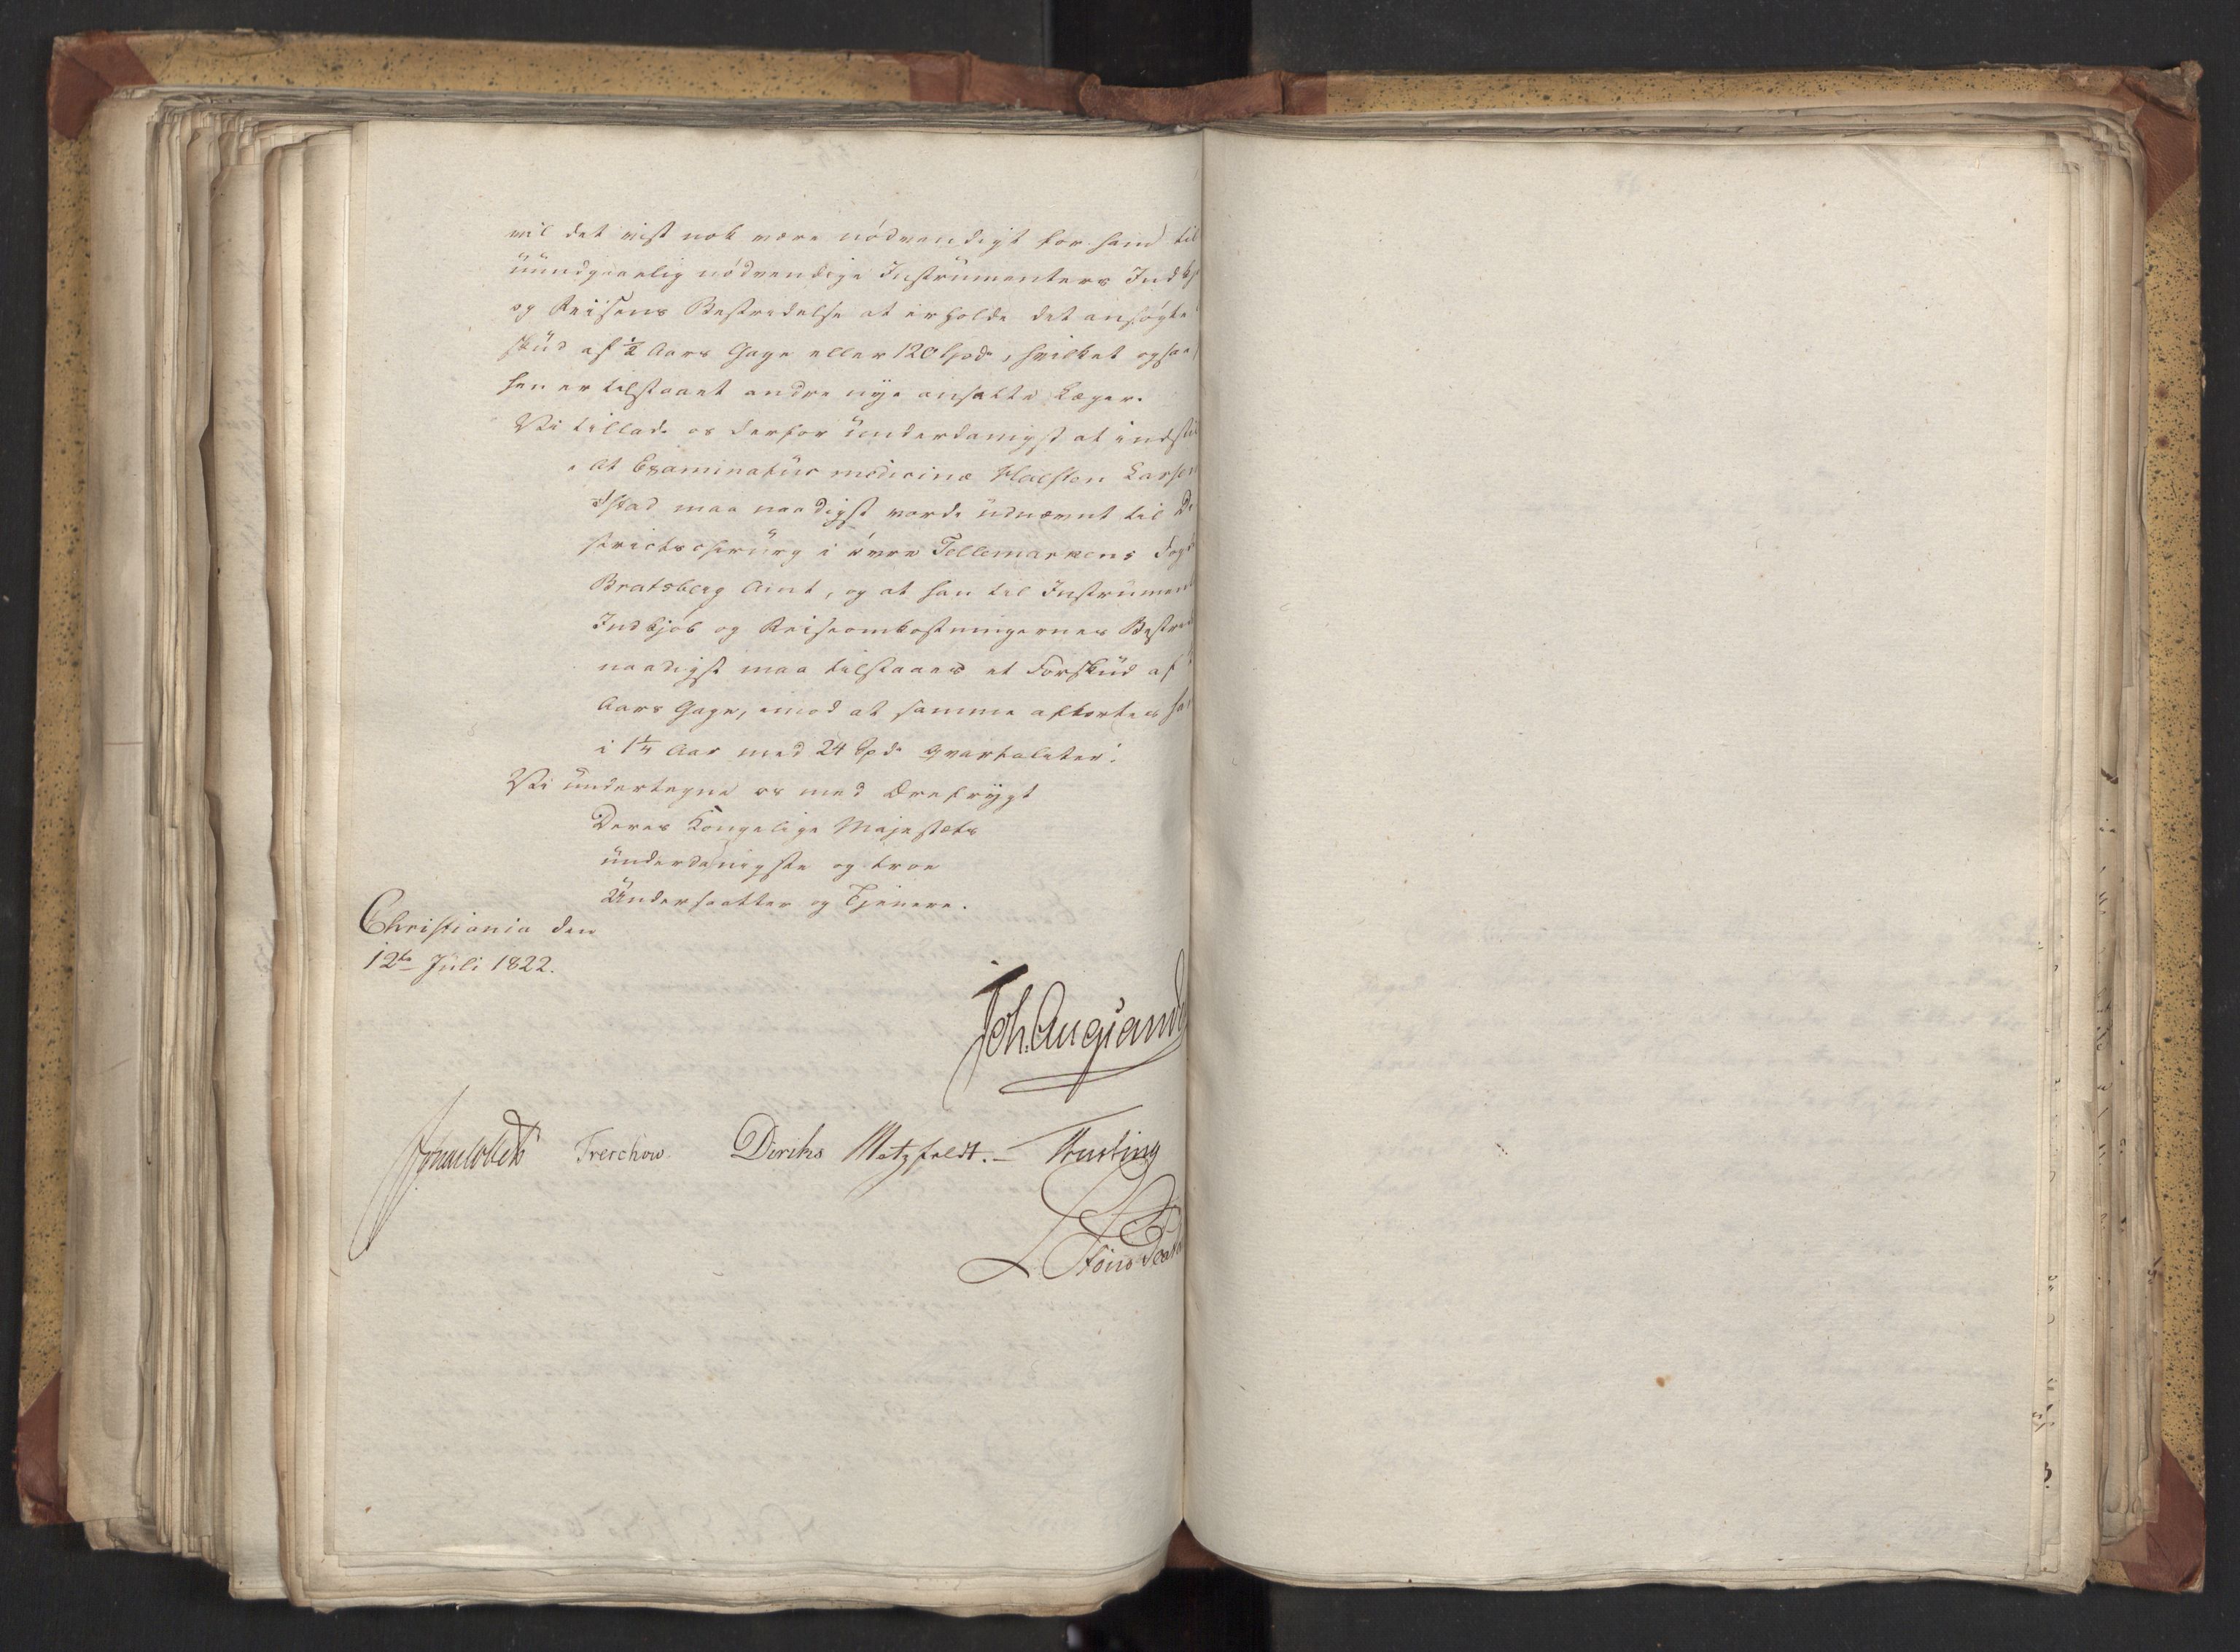 vil det vist nok være nödvendigt for ham til
uundgaaelig nödvendige Instrumenters Indkj
og Reisens Bestridelse at erholde det ansögte
skud af ½ Aars Gage eller 120 Spd, hvilket ogsaa
hen er tilstaaet andre nye ansatte Læger.
Vi tillade os derfor underdanigst at indstil
at Examinatus medicinæ Halsten Larsen
stad maa naadigst vorde udnævnt til Di
strictschirurg i övre Tellemarkens Fogd
Bratsberg Amt, og at han til Instrument
Indkjöb og Reiseomkostningernes Bestrid
naadigst maa tilstaaes et Forskud af
Aars Gage, imod at samme afkortes ham
i 1¼ Aar med 24 Spd. qvartaliter.
Vi undertegne os med Ærefrygt
Deres Kongelige Majestæts
underdanigste og troe
Undersaatter og Tjenere.
Christiania den
12te Juli 1822.
Joh. Aug Sandels
Sommerhielm Treschow. Diriks Motzfeldt. Fasting